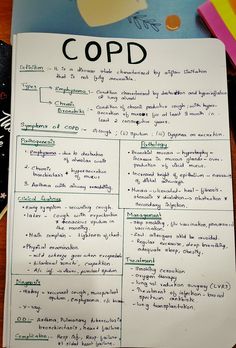 COPD
Definition - It is a disease state characterised by airflow limitation
that is not fully reversible.
Types
Emphysema - Condition characterised by destruction and
of lung alveoli
Chronic
Bronchitis - Condition of chronic productive cough with hyper
secretion of mucus for at least 3 month in
2 consecutive years.
Symptoms of COPD - (i) Cough (ii) Sputum (iii) Dyspnea on exertion.
Pathogenesis
1. Emphysema - due to destruction
of alveolar walls
2. Chronic
bronchitis - hypersecretion
of mucus
3. Asthma with airway remodelling
Pathology
- Bronchial mucosa - hypertrophy -
increase in mucous glands - over
production of viscid mucus.
- Increased height of epithelium - narrowing
of distal airways.
- Mucosa - ulcerated heal - fibrosis -
stenosis & dilatation → obstruction &
Secondary infection
Clinical features
- Early symptom - recurring cough
- later - cough with expectoration
of mucopurulent sputum in
the morning.
- Main complain - tightness of chest.
- Physical examination
- mild wheeze
- bilateral rhonchi, crepitation
purulent sputum
Management
- Stop smoking
vaccination, pneumococcal
vaccine.
- Cold allergens should be avoided.
- Regular exercise, deep breathing,
adequate sleep,
Treatment
- Smoking cessation
- Oxygen therapy
- lung volume reduction surgery (LVRS)
- Treatment of infection - broad
spectrum antibiotic
- lung transplantation
Diagnosis
- History - recurrent cough, mucopurulent
sputum
- X-ray.
DD - Asthma, Pulmonary tuberculosis,
bronchiectasis, heart failure.
Complication - Resp. inf., Resp. failure,
Rt sided heart failure.